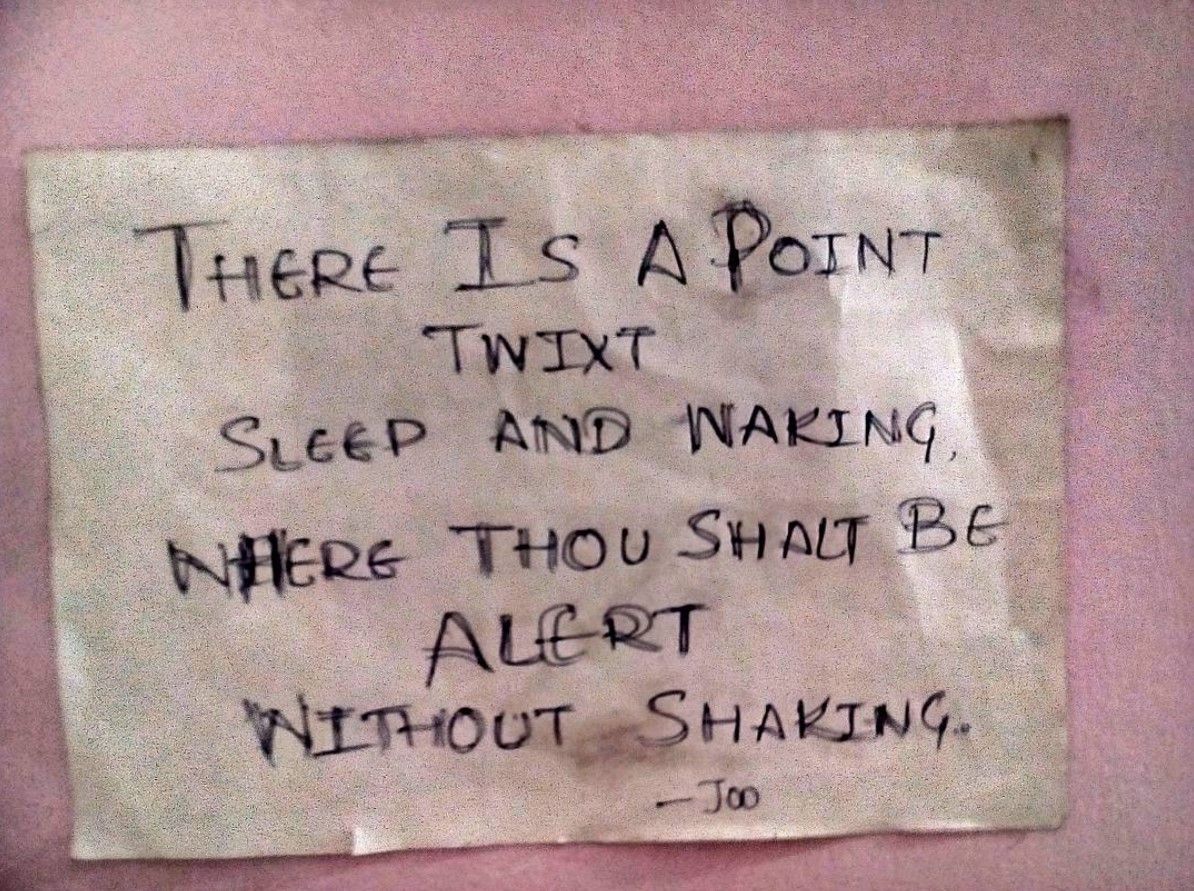 THERE IS A POINT
TWIXT
SLEEP AND WAKING,
WHERE THOU SHALT BE
ALERT
WITHOUT SHAKING.
—JOO